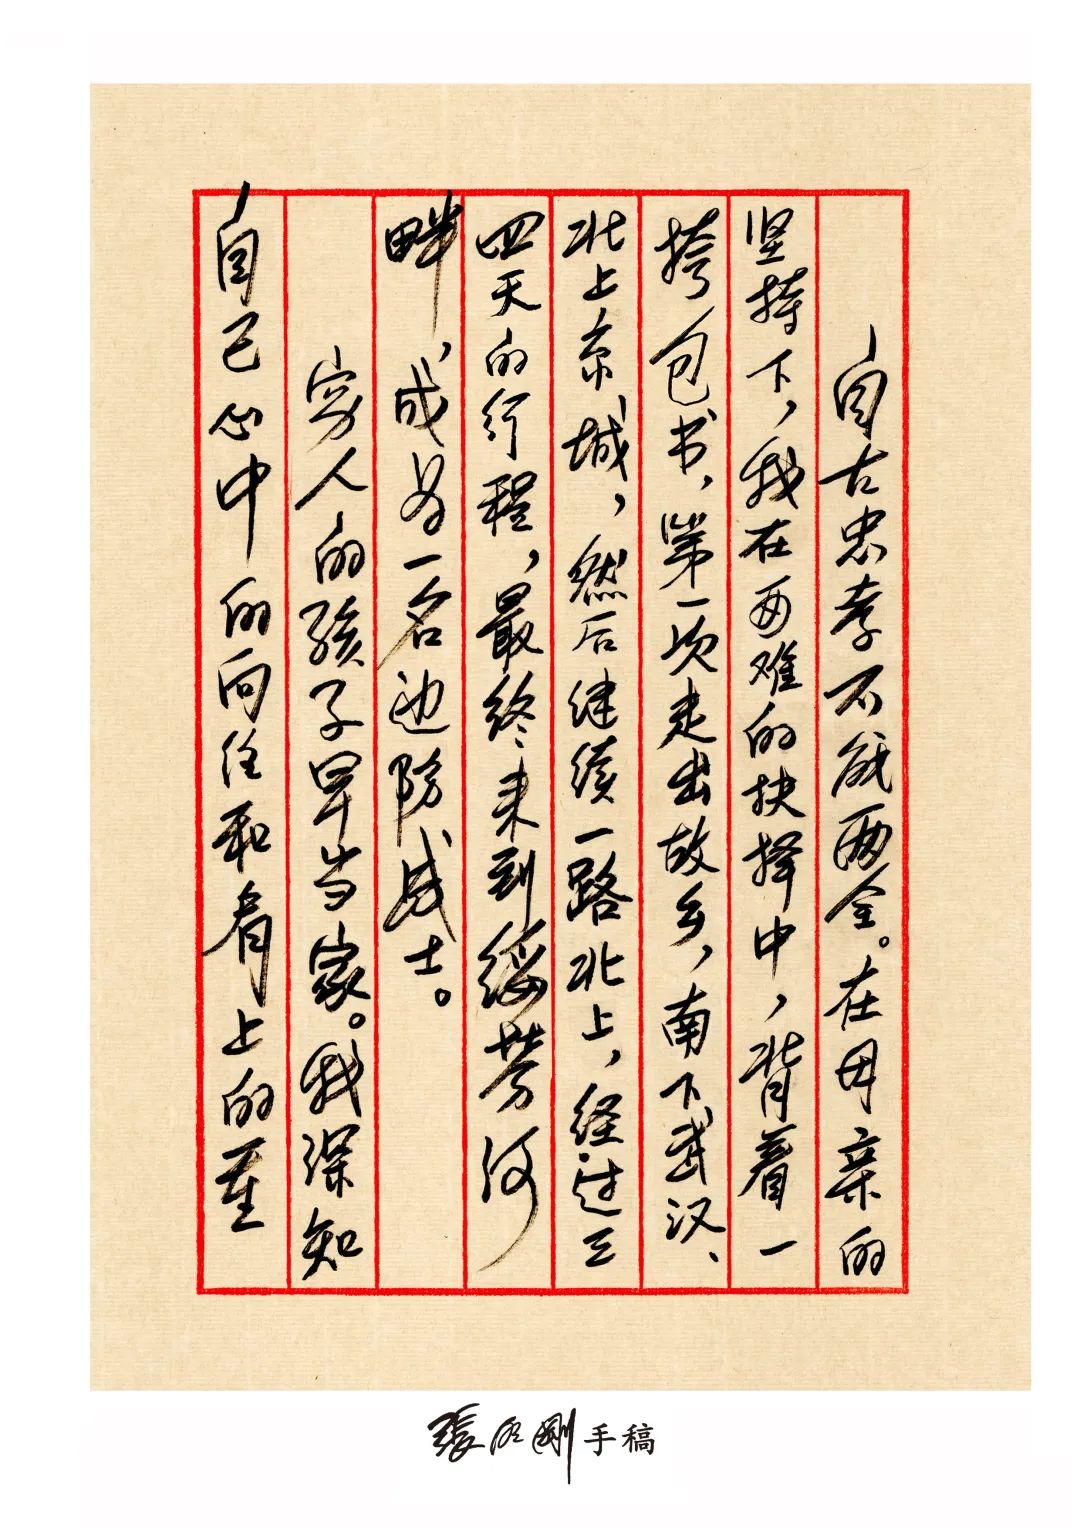 自古忠孝不能两全。在母亲的
坚持下，我在两难的抉择中，背着一
挎包书，第一次走出故乡，南下武汉、
北上京城，然后继续一路北上，经过三
四天的行程，最终来到绥芬河
畔，成为一名边防战士。
穷人的孩子早当家。我深知
自己心中的向往和肩上的重
張明剛手稿